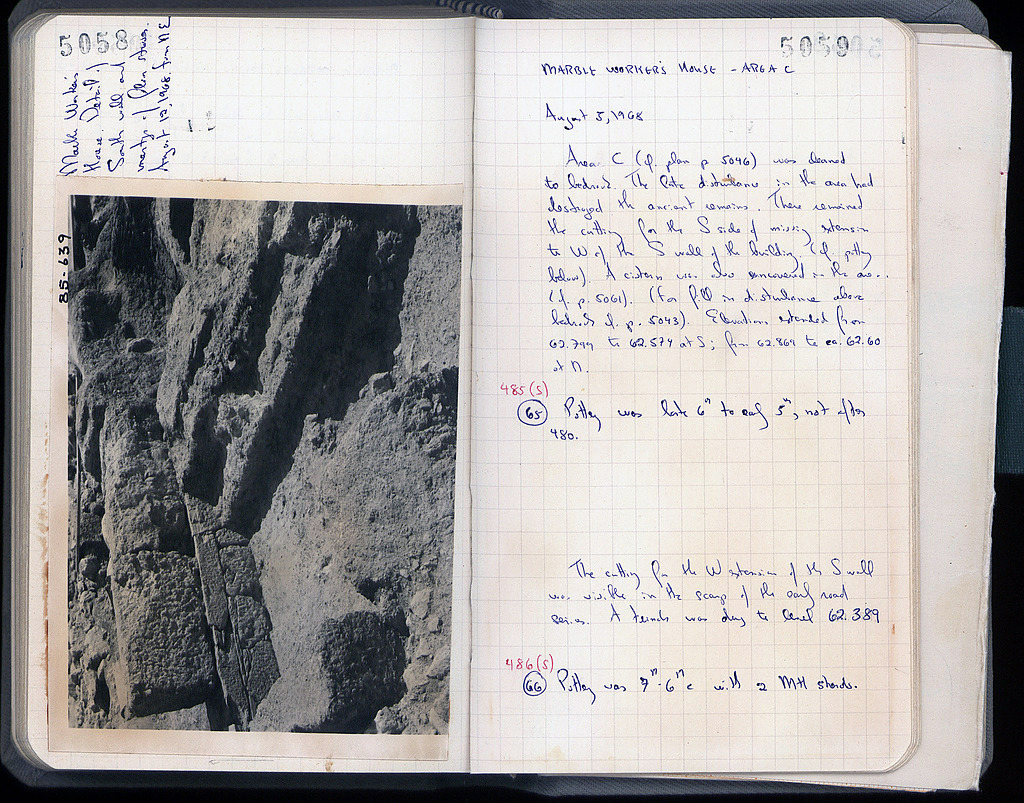 5058
Marble Worker's
House. Detail of
South wall and
August 12, 1968. from NE
85-639
5059
MARBLE WORKER'S HOUSE - AREA C
August 5, 1968
Area C (cf. plan p 5046) was cleaned
to bedrock. The late disturbance in the area had
destroyed the ancient remains. There remained
the cutting for the S side of missing extension
to W of the S wall of the building, (cf. pottery
below). A cistern was also uncovered in the area.
(cf. p. 5061). (for fill in disturbance above
bedrock cf. p. 5043). Elevations extended from
62.799 to 62.579 at S; from 62.869 to ca. 62.60
at N.
485(5)
65 Pottery was late 6th to early 5th, not after
480.
The cutting for the W extension of the S wall
was visible in the scarp of the early road
series. A trench was dug to level 62.389
486(5)
66 Pottery was 7th-6th c with 2 MH sherds.